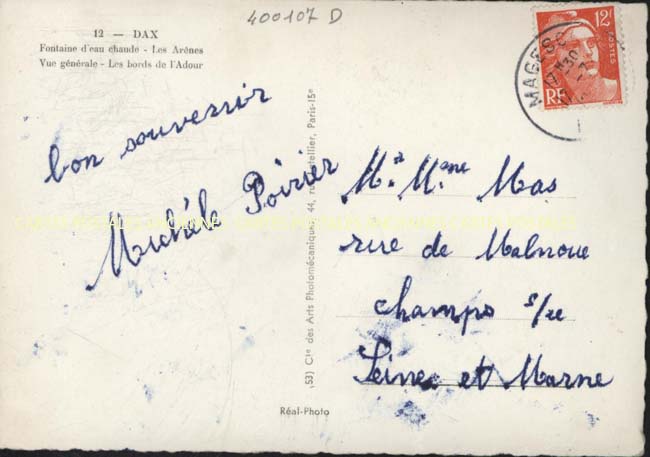 400107 D
12 — DAX
Fontaine d'eau chaude - Les Arènes
Vue générale - Les bords de l'Adour
12F
POSTES
RF
MAGESC
bon souvenir
Michèle Poirier
Mr Mme Mas
rue de Malnoue
champs s/
Seine et Marne
(53) Cie des Arts Photomécaniques, 44, rue Letellier, Paris-15e
Réal-Photo